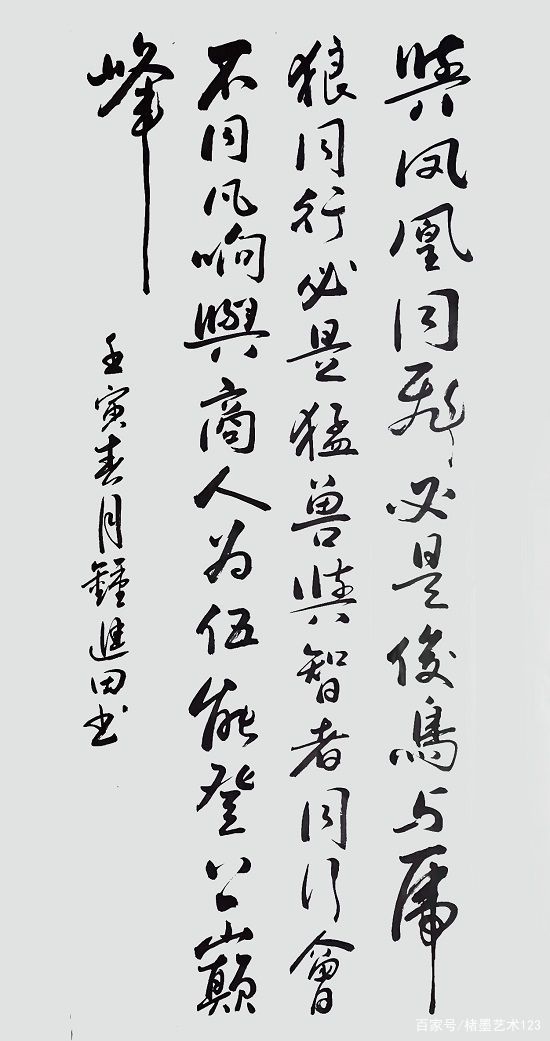 與凤凰同飛必是俊鳥与虎
狼同行必是猛兽與智者同行會
不同凡响與商人为伍能登上巔
峰
壬寅春月鍾進田书
百家号/楮墨艺术123